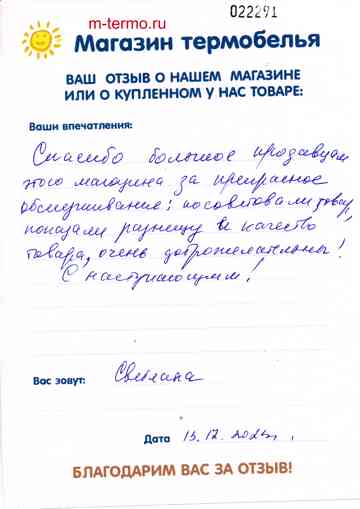 m-termo.ru
022291
Магазин термобелья
ВАШ ОТЗЫВ О НАШЕМ МАГАЗИНЕ
ИЛИ О КУПЛЕННОМ У НАС ТОВАРЕ:
Ваши впечатления:
Спасибо большое продавцам
этого магазина за прекрасное
обслуживание: посоветовали товар,
показали разницу и качество
товара, очень доброжелательны!
С наступающим!
Вас зовут: Светлана
Дата 15.12.
БЛАГОДАРИМ ВАС ЗА ОТЗЫВ!